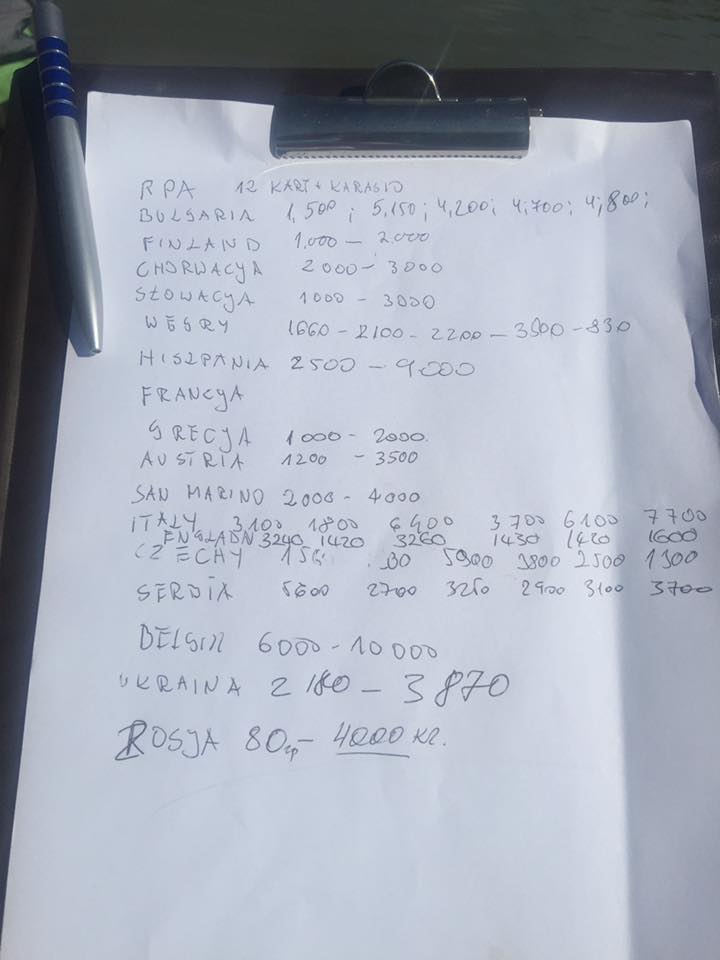 RPA 12 KART + KARASIO
BULGARIA 1,500 ; 5,150 ; 4,200 ; 4,700 ; 4,800 ;
FINLAND 1.000 – 2.000
CHORWACYA 2000 – 3000
SŁOWACYA 1000 – 3000
WĘGRY 1660 – 2100 – 2200 – 3500 – 830
HISZPANIA 2500 – 9000
FRANCYA
GRECJA 1000 – 2000
AUSTRIA 1200 – 3500
SAN MARINO 2000 – 4000
ITALY 3100 1800 6400 3700 6100 7700
ENGLADN 3240 1420 3260 1430 1420 1600
CZECHY 5900 3800 2500 1300
SERBIA 5600 2700 3250 2900 3100 3700
BELGIA 6000 – 10000
UKRAINA 2180 – 3870
ROSJA 80гр – 4000 кг.